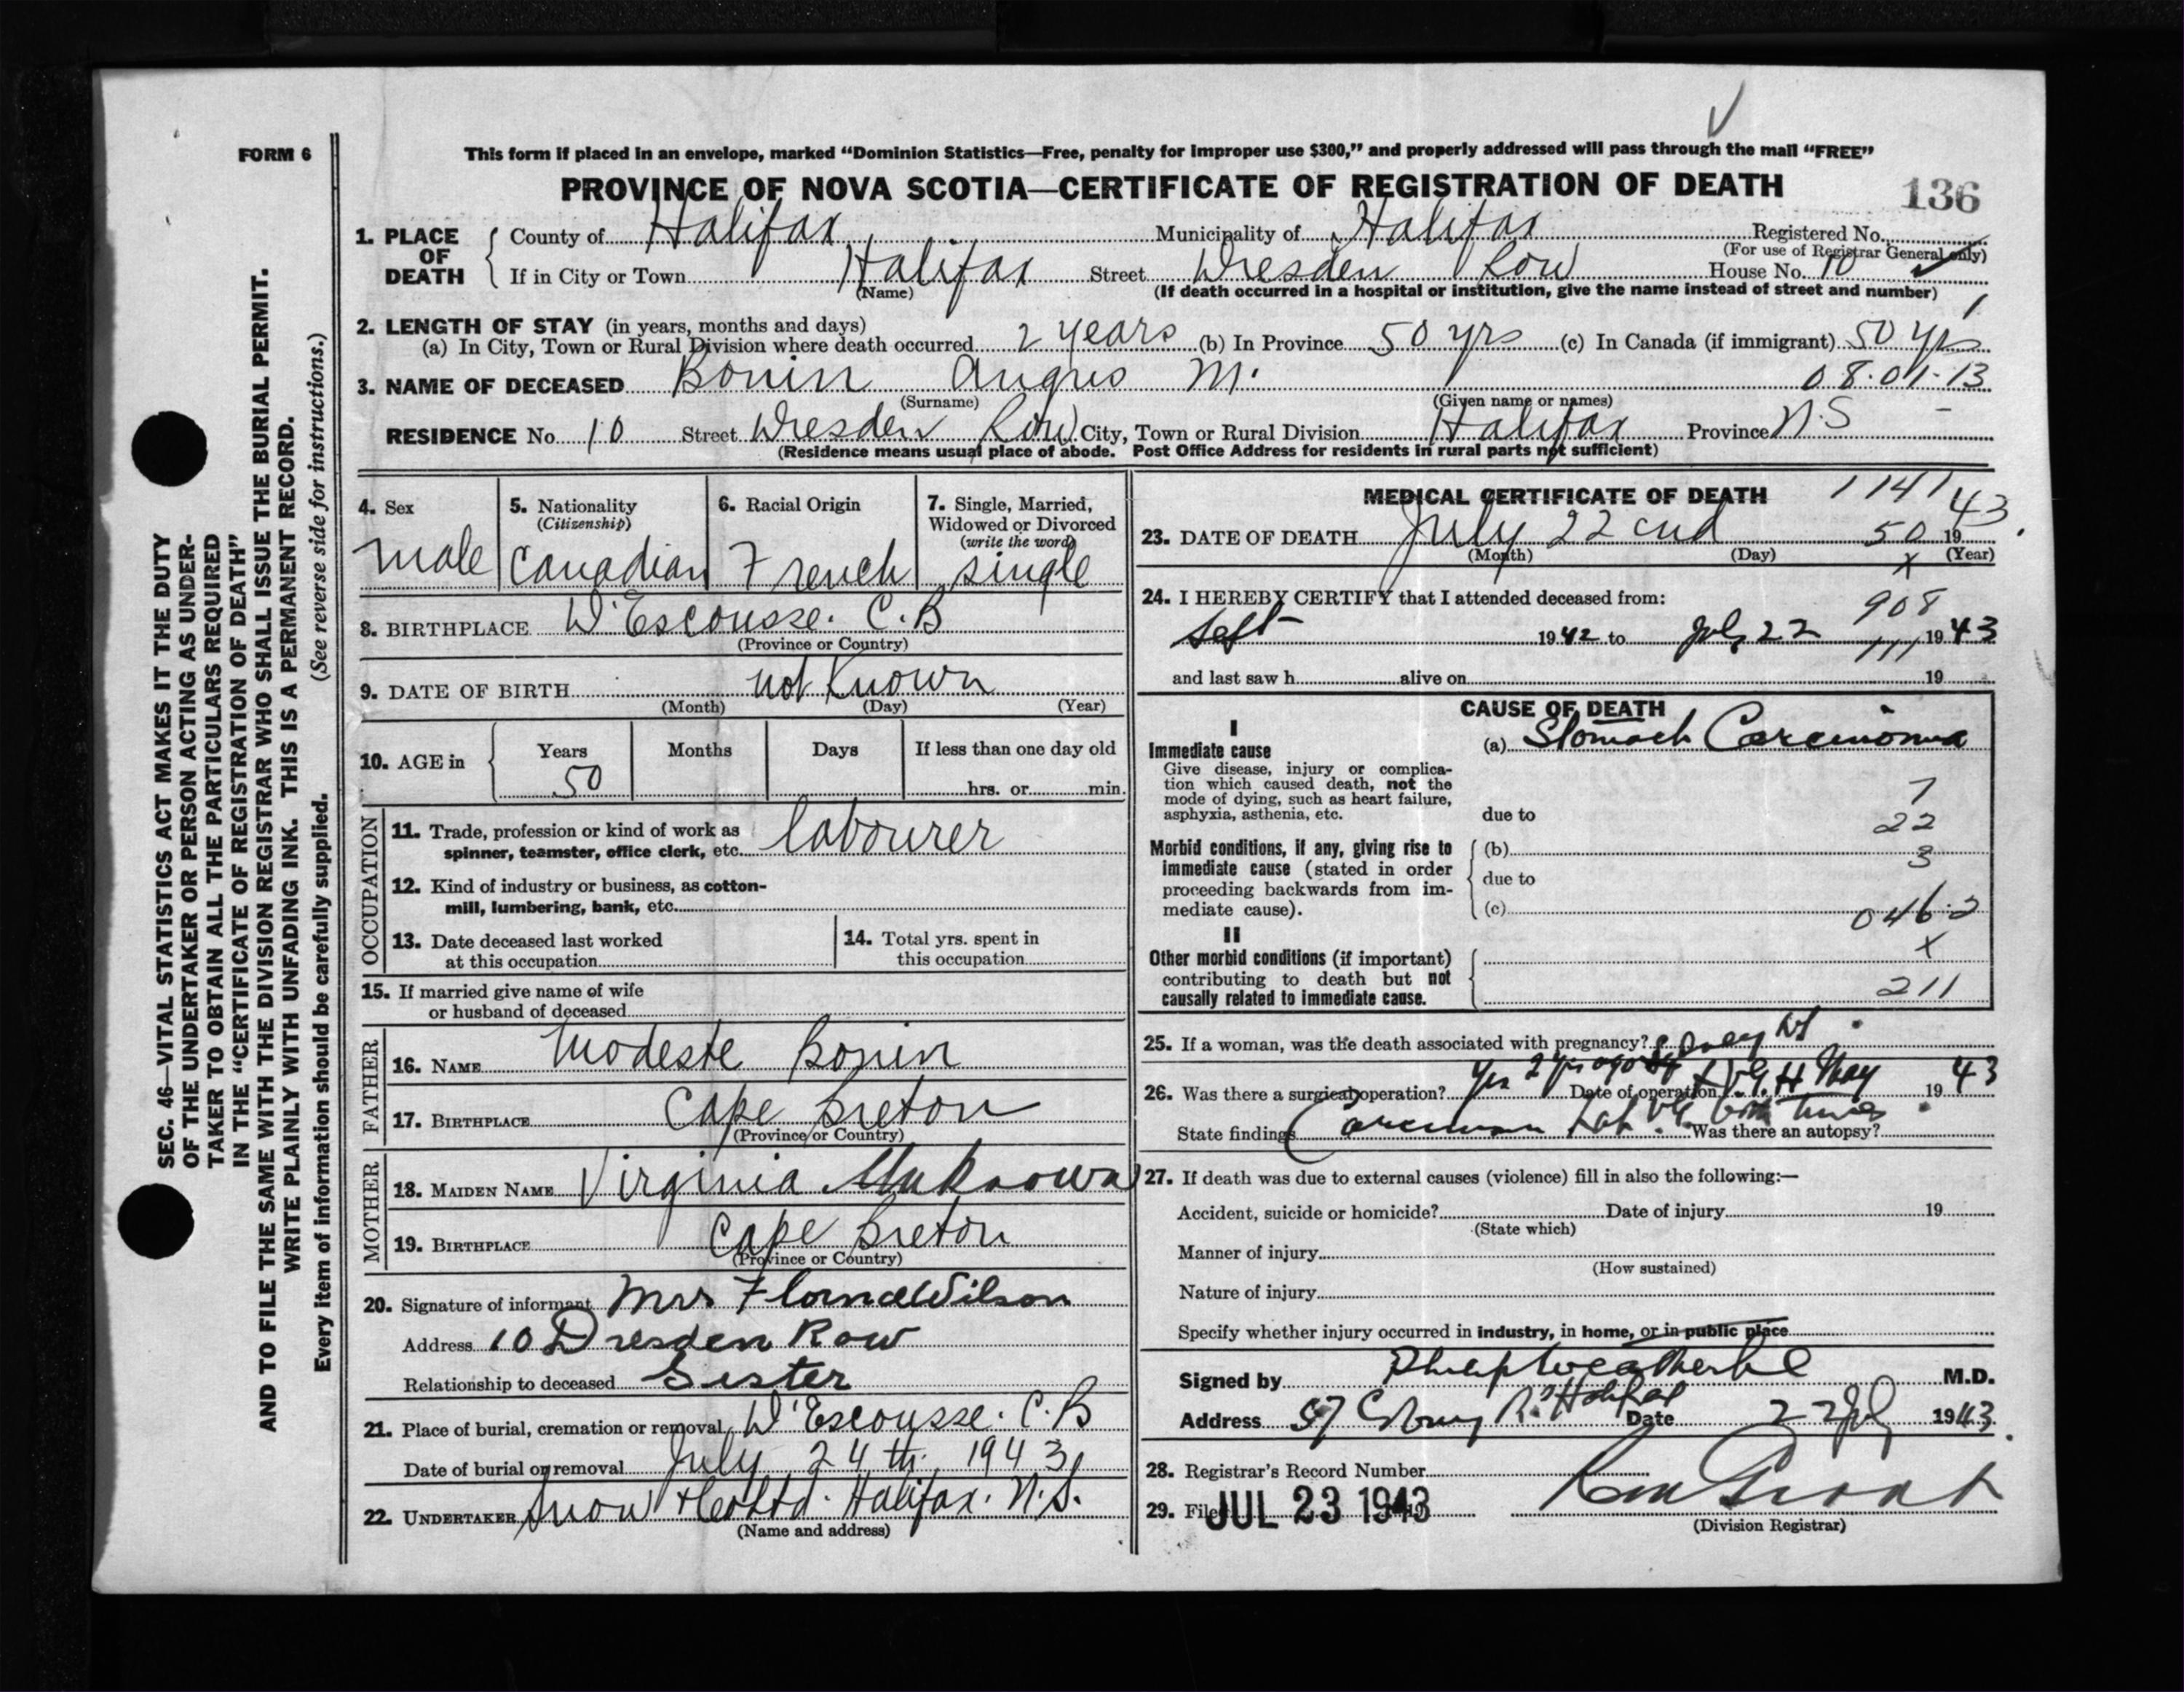 FORM 6
This form if placed in an envelope, marked “Dominion Statistics—Free, penalty for improper use $300,” and properly addressed will pass through the mail “FREE”
PROVINCE OF NOVA SCOTIA—CERTIFICATE OF REGISTRATION OF DEATH
136
1. PLACE OF DEATH
County of Halifax Municipality of Halifax Registered No.
(For use of Registrar General only)
If in City or Town Halifax Street Dresden Row House No. 10
(Name) (If death occurred in a hospital or institution, give the name instead of street and number)
2. LENGTH OF STAY (in years, months and days)
(a) In City, Town or Rural Division where death occurred 2 years (b) In Province 50 yrs (c) In Canada (if immigrant) 50 yrs
3. NAME OF DECEASED Bonin Angus M. 08.01.13
(Surname) (Given name or names)
RESIDENCE No. 10 Street Dresden Row City, Town or Rural Division Halifax Province N.S
(Residence means usual place of abode. Post Office Address for residents in rural parts not sufficient)
4. Sex
male
5. Nationality
(Citizenship)
Canadian
6. Racial Origin
French
7. Single, Married,
Widowed or Divorced
(write the word)
single
8. BIRTHPLACE D'Escousse. C.B
(Province or Country)
9. DATE OF BIRTH not Known
(Month) (Day) (Year)
10. AGE in
Years Months Days If less than one day old
50 hrs. or min.
OCCUPATION
11. Trade, profession or kind of work as
spinner, teamster, office clerk, etc. labourer
12. Kind of industry or business, as cotton-
mill, lumbering, bank, etc.
13. Date deceased last worked
at this occupation
14. Total yrs. spent in
this occupation
15. If married give name of wife
or husband of deceased
FATHER
16. NAME Modeste Bonin
17. BIRTHPLACE Cape Breton
(Province or Country)
MOTHER
18. MAIDEN NAME Virginia Unknown
19. BIRTHPLACE Cape Breton
(Province or Country)
20. Signature of informant Mrs Florence Wilson
Address 10 Dresden Row
Relationship to deceased Sister
21. Place of burial, cremation or removal D'Escousse. C.B
Date of burial or removal July 24th. 1943
22. UNDERTAKER Snow & Co Ltd. Halifax. N.S.
(Name and address)
MEDICAL CERTIFICATE OF DEATH 1141
23. DATE OF DEATH July 22 cnd 50 1943
(Month) (Day) x (Year)
24. I HEREBY CERTIFY that I attended deceased from:
908
Sept 1942 to July 22 1943
111
and last saw h alive on 19
CAUSE OF DEATH
I
Immediate cause
(a) Stomach Carcinoma
Give disease, injury or complica-
tion which caused death, not the
mode of dying, such as heart failure,
asphyxia, asthenia, etc.
7
due to
22
Morbid conditions, if any, giving rise to
immediate cause (stated in order
proceeding backwards from im-
mediate cause).
(b) 3
due to
(c) 046.2
II
x
Other morbid conditions (if important)
contributing to death but not
causally related to immediate cause.
211
25. If a woman, was the death associated with pregnancy?
26. Was there a surgical operation? Yes 2 yrs ago Date of operation V.G.H May 1943
State findings Carcinoma both times Was there an autopsy?
27. If death was due to external causes (violence) fill in also the following:—
Accident, suicide or homicide? Date of injury 19
(State which)
Manner of injury
(How sustained)
Nature of injury
Specify whether injury occurred in industry, in home, or in public place
Signed by Philip Weatherbe M.D.
Address 57 Coburg Rd Halifax Date 22 July 1943
28. Registrar's Record Number
29. Filed JUL 23 1943
(Division Registrar)
SEC. 46—VITAL STATISTICS ACT MAKES IT THE DUTY
OF THE UNDERTAKER OR PERSON ACTING AS UNDER-
TAKER TO OBTAIN ALL THE PARTICULARS REQUIRED
IN THE “CERTIFICATE OF REGISTRATION OF DEATH”
AND TO FILE THE SAME WITH THE DIVISION REGISTRAR WHO SHALL ISSUE THE BURIAL PERMIT.
WRITE PLAINLY WITH UNFADING INK. THIS IS A PERMANENT RECORD.
Every item of information should be carefully supplied. (See reverse side for instructions.)